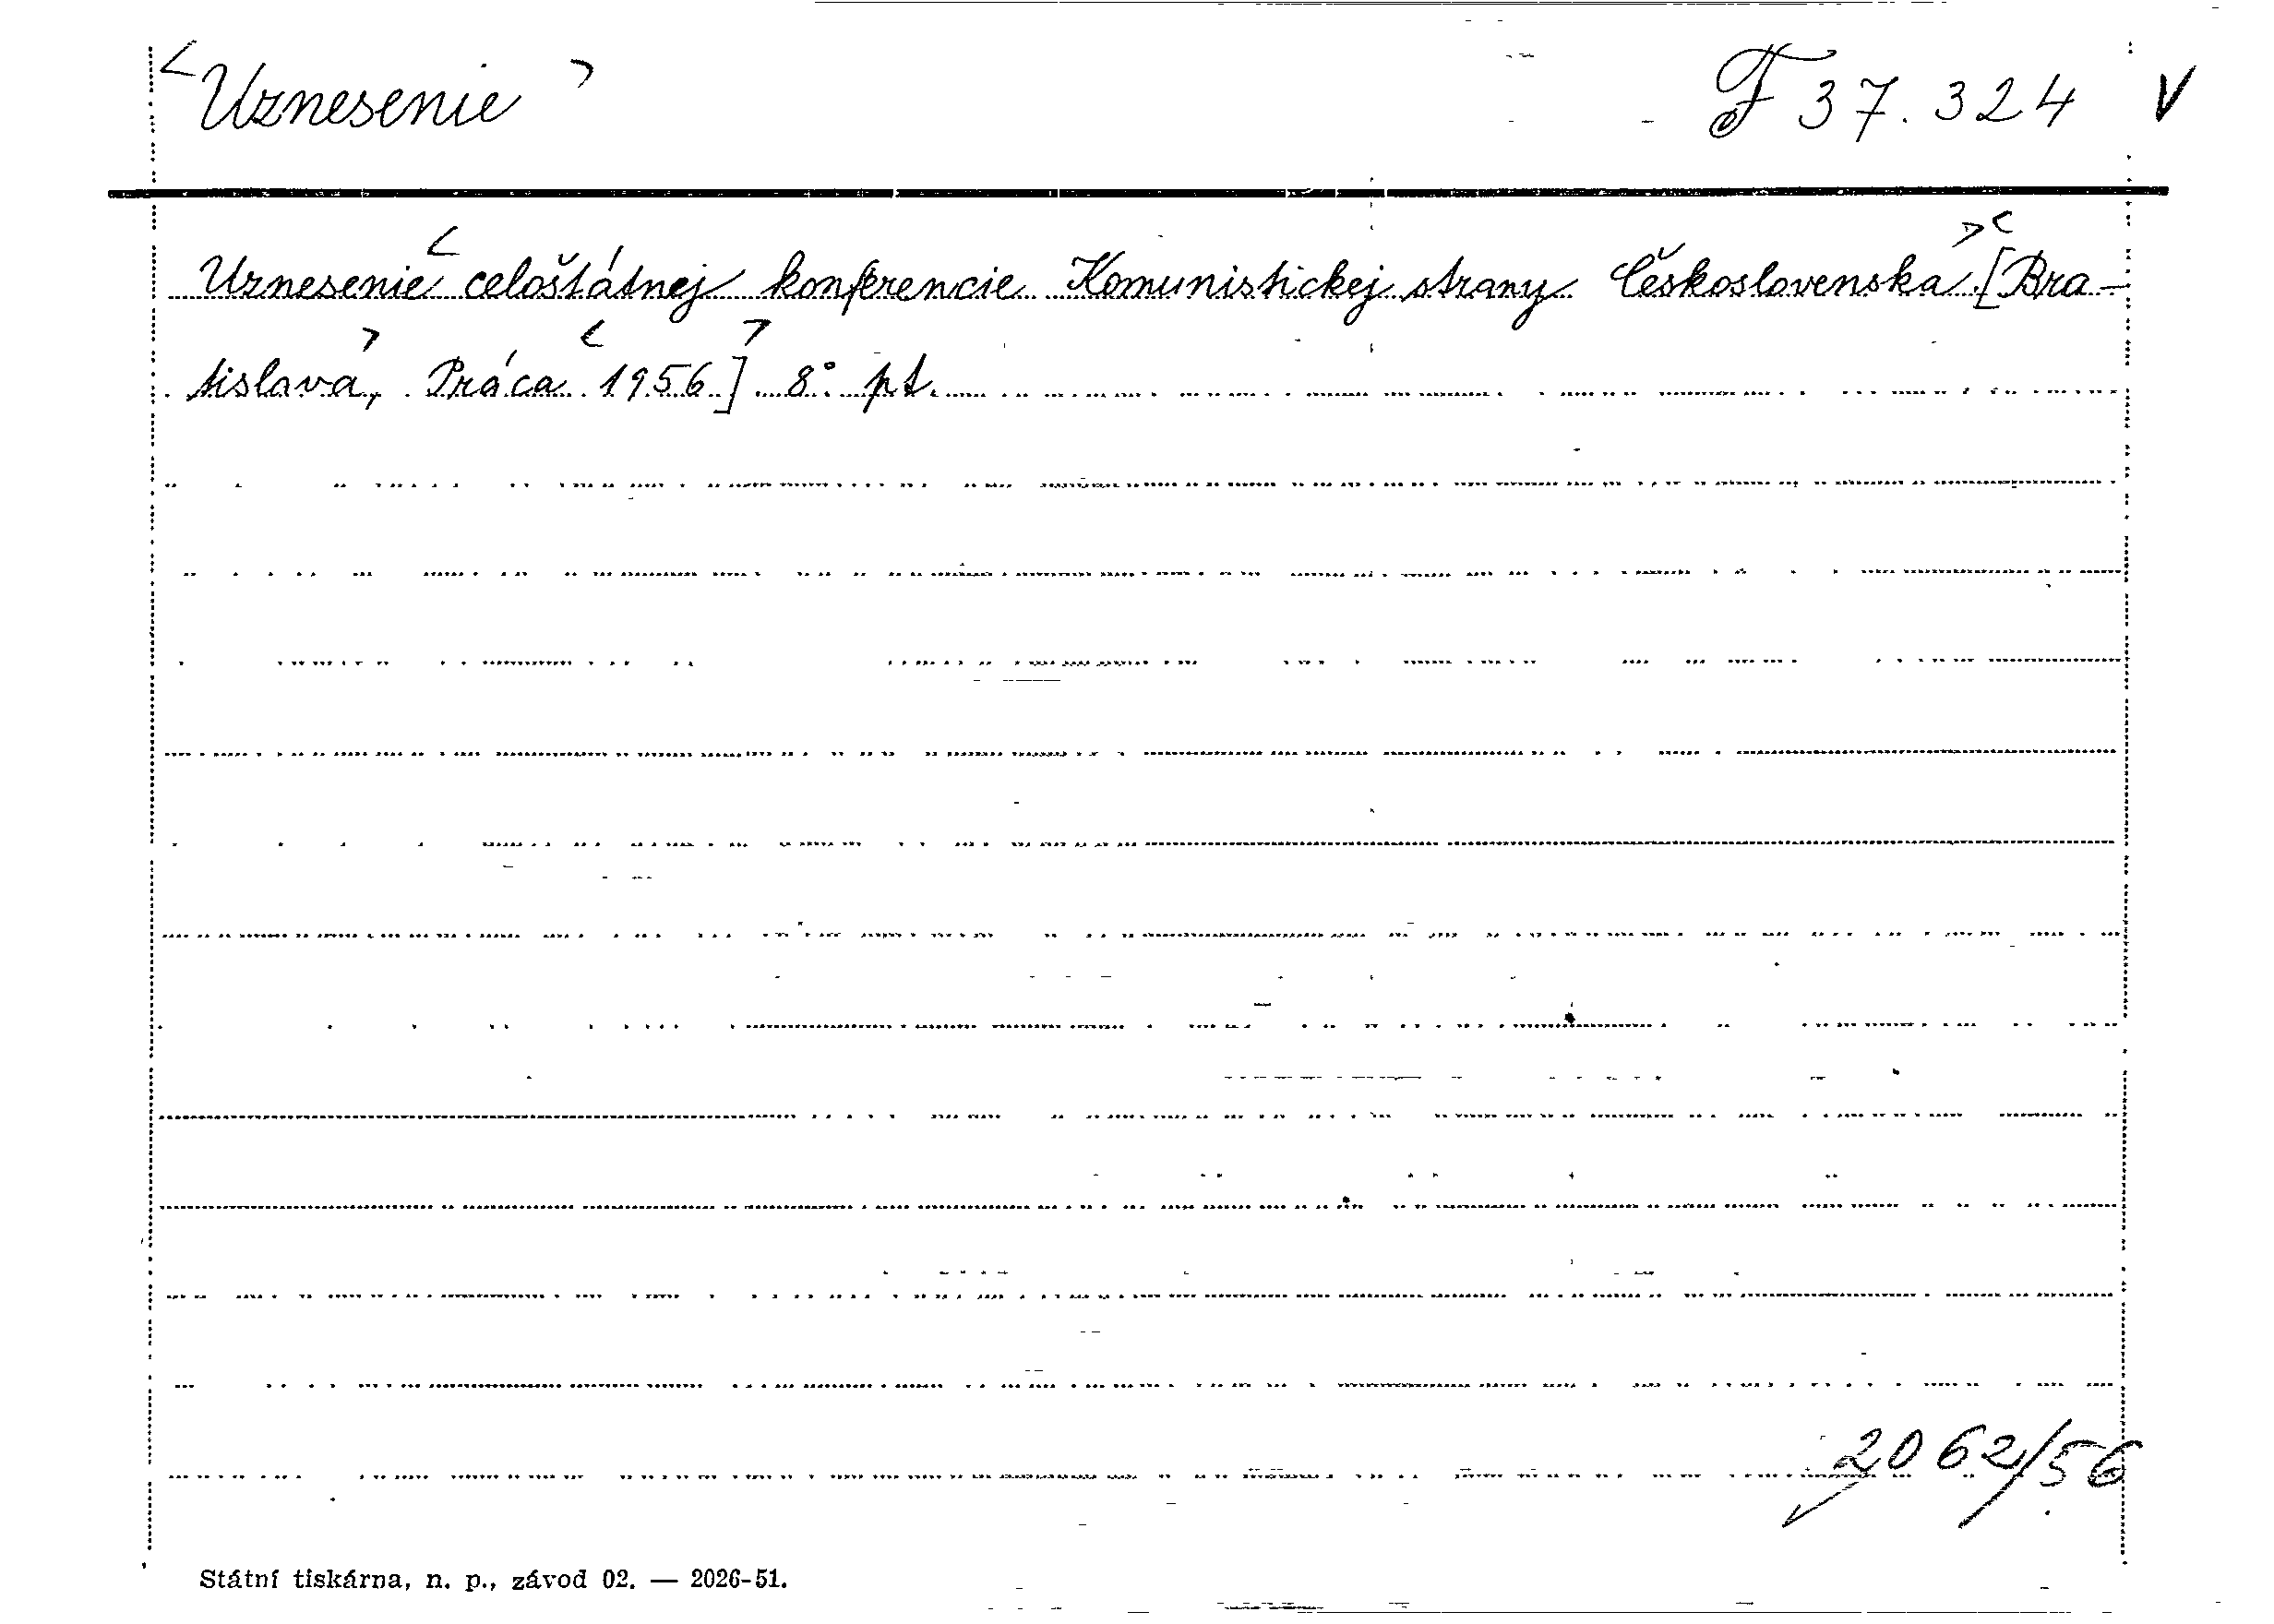 <Uznesenie> F 37.324 V
Uznesenie <celoštátnej konferencie Komunistickej strany Československa.> <[Bra-
tislava,> Práca <1956]> 8° pt.
2062/56
Státní tiskárna, n. p., závod 02. — 2026-51.